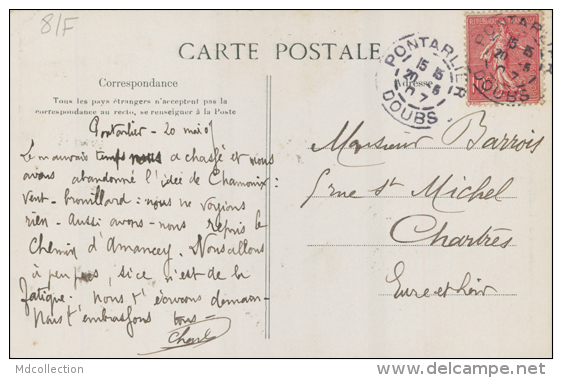 81F
CARTE POSTALE
Correspondance
Tous les pays étrangers n'acceptent pas la
correspondance au recto, se renseigner à la Poste
Adresse
PONTARLIER
15 15
20 -5
07
DOUBS
PONTARLIER
15 15
20 -5
07
DOUBS
Pontarlier - 20 mai 07
Le mauvais temps nous a chassé et nous
avons abandonné l'idée de Chamonix:
vent - brouillard: nous ne voyions
rien - Aussi avons-nous repris le
Chemin d'Amancey. Nous allons
à peu près, si ce n'est de la
fatigue. Nous t'écrivons demain -
Nous t'embrassons tous -
Monsieur Barrois
5 rue St Michel
Chartres
Eure et Loir
Mdcollection
delcampe.net